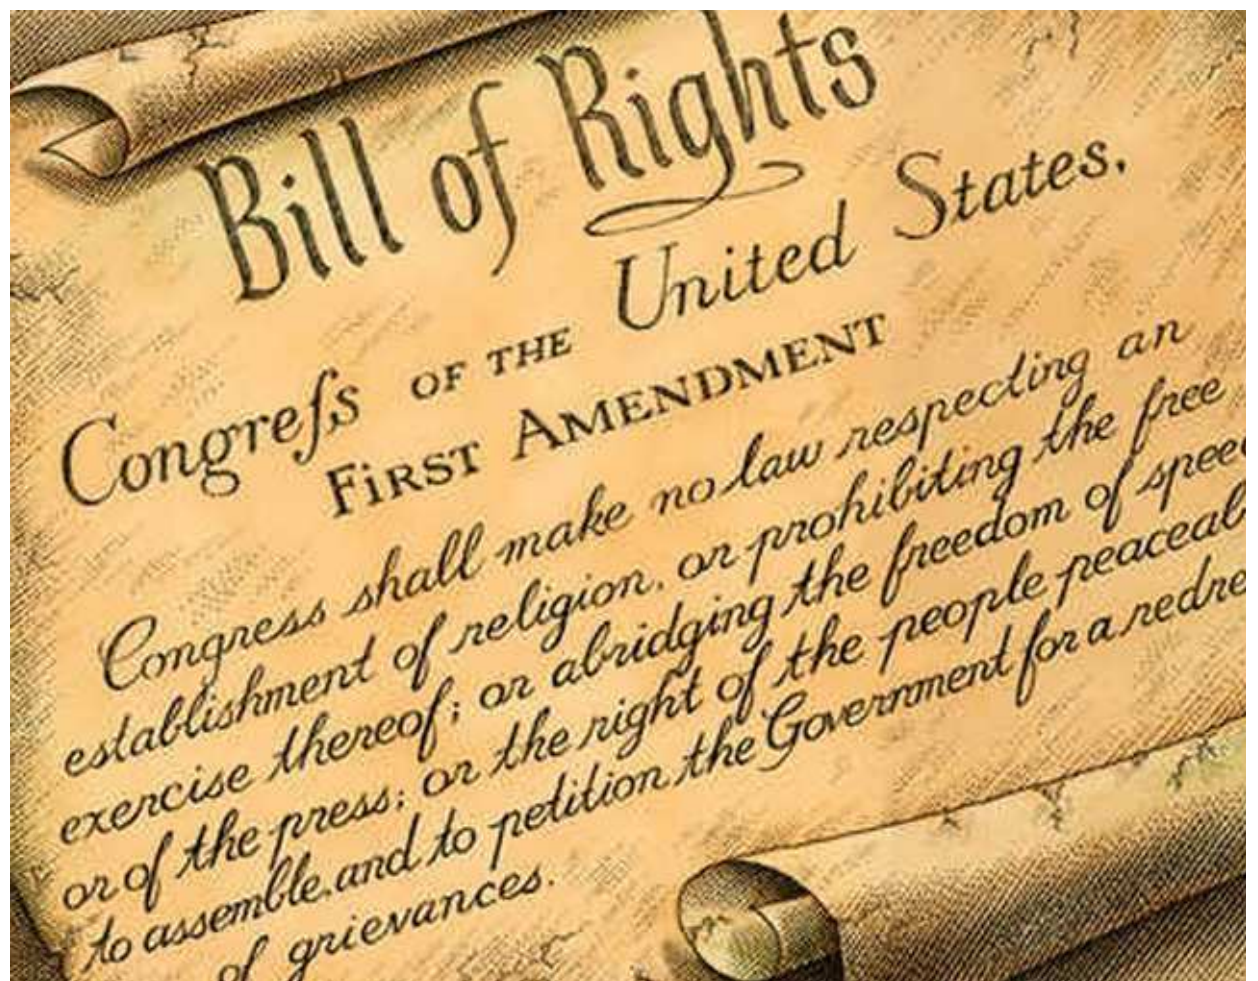 Bill of Rights
Congreſs OF THE United States,
FIRST AMENDMENT
Congress shall make no law respecting an
establishment of religion, or prohibiting the free
exercise thereof; or abridging the freedom of speec
or of the press; or the right of the people peaceabl
to assemble, and to petition the Government for a redre
of grievances.